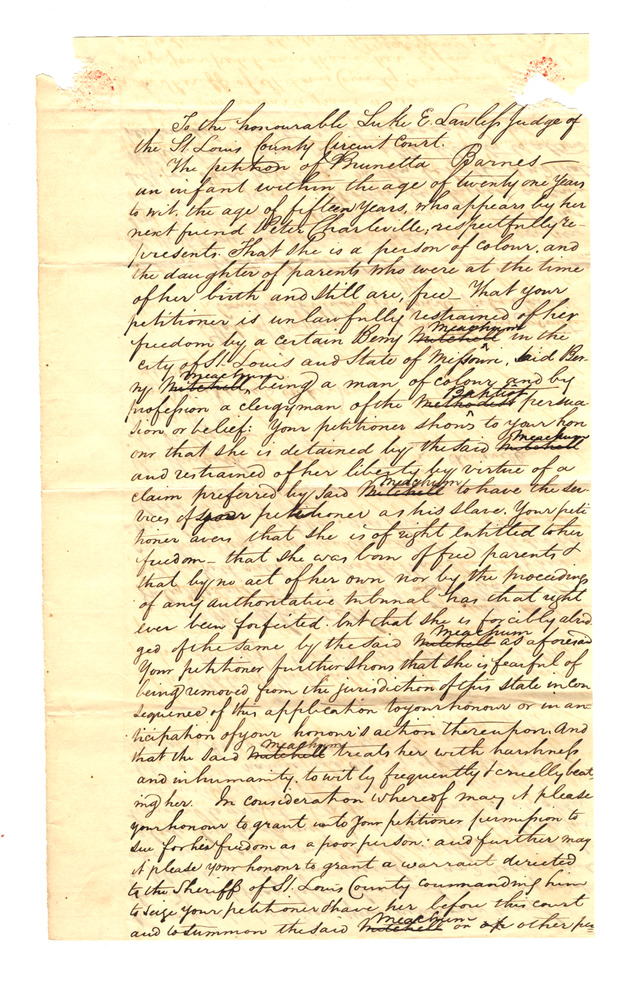 To the honourable Luke E. Lawless Judge of
the St. Louis County Circuit Court.
The petition of Brunetta Barnes —
an infant within the age of twenty one Years
to wit, the age of fifteen Years, who appears by her
next friend Peter Charleville, respectfully re-
presents. That she is a person of colour, and
the daughter of parents who were at the time
of her birth and still are, free — That your
petitioner is unlawfully restrained of her
Meachum
freedom by a certain Berry Mitchell in the
city of St. Louis and State of Missouri, said Ber-
Meachum
ry Mitchell, being a man of colour and by
Baptist
profession a clergyman of the Methodist persua
sion or belief: Your petitioner shows to your hon
Meachum
our that she is detained by the said Mitchell
and restrained of her liberty by virtue of a
Meachum
claim preferred by said Mitchell to have the ser-
vices of your petitioner as his slave. Your peti
tioner avers that she is of right entitled to her
freedom — that she was born of free parents &
that by no act of her own nor by the proceedings
of any authoritative tribunal has that right
ever been forfeited. but that she is forcibly abrid
Meachum
ged of the same by the said Mitchell as aforesaid
Your petitioner further shows that she is fearful of
being removed from the jurisdiction of this state in con
sequence of this application to your honour or in an-
ticipation of your honour's action thereupon. And
Meachum
that the said Mitchell treats her with harshness
and inhumanity, to wit by frequently & cruelly beat-
ing her. In consideration whereof may it please
your honour to grant unto Your petitioner permission to
sue for her freedom as a poor person: and further may
it please your honour to grant a warrant directed
to the Sheriff of St. Louis County commanding him
to seize your petitioner & have her before this court
Meachum
and to summon the said Mitchell or other per